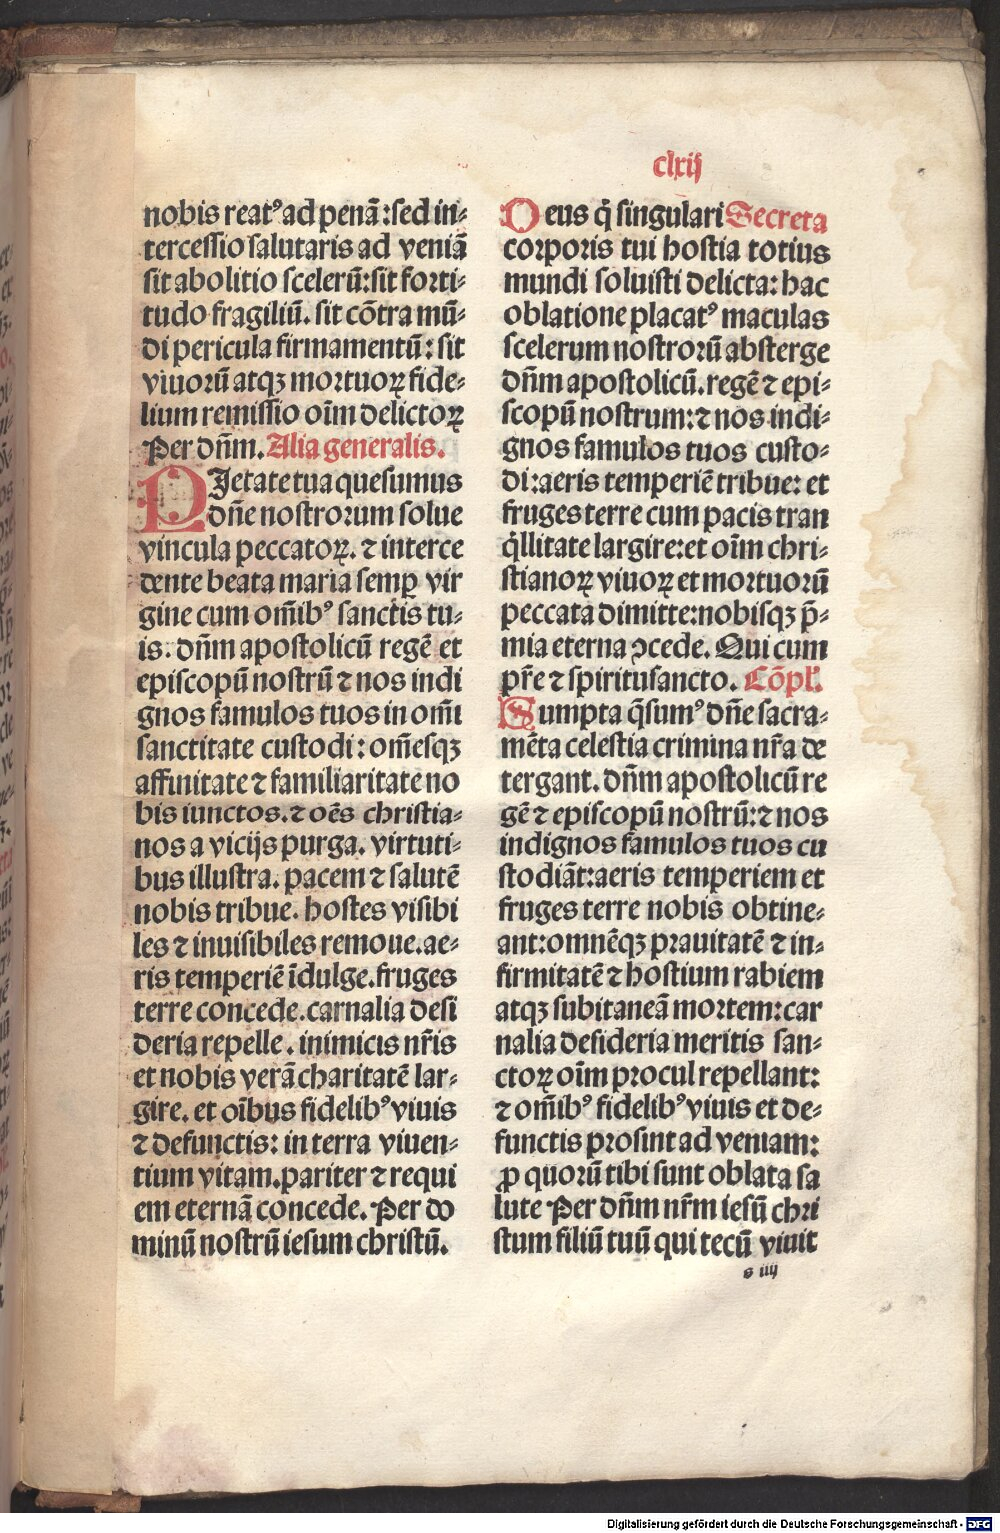 clxij
nobis reatꝰ ad penā: sed in⸗
tercessio salutaris ad veniā
sit abolitio scelerū: sit forti⸗
tudo fragiliū. sit cōtra mū⸗
di pericula firmamentū: sit
viuorū atqꝫ mortuoꝝ fide⸗
lium remissio oīm delictoꝝ
Per dn̄m. Alia generalis.
PIetate tua quesumus
dn̄e nostrorum solue
vincula peccatoꝝ. ⁊ interce
dente beata maria semꝑ vir
gine cum om̄ibꝰ sanctis tu⸗
is: dn̄m apostolicū regē et
episcopū nostrū ⁊ nos indi
gnos famulos tuos in om̄i
sanctitate custodi: om̄esqꝫ
affinitate ⁊ familiaritate no
bis iunctos. ⁊ oēs christia⸗
nos a vicijs purga. virtuti⸗
bus illustra. pacem ⁊ salutē
nobis tribue. hostes visibi
les ⁊ inuisibiles remoue. ae⸗
ris temperiē īdulge. fruges
terre concede. carnalia desi
deria repelle. inimicis nr̄is
et nobis verā charitatē lar⸗
gire. et oībus fidelibꝰ viuis
⁊ defunctis: in terra viuen⸗
tium vitam. pariter ⁊ requi
em eternā concede. Per do
minū nostrū iesum christū.
Deus q̄ singulari Secreta
corporis tui hostia totius
mundi soluisti delicta: hac
oblatione placatꝰ maculas
scelerum nostrorū absterge
dn̄m apostolicū. regē ⁊ epi⸗
scopū nostrum: ⁊ nos indi⸗
gnos famulos tuos custo⸗
di: aeris temperiē tribue: et
fruges terre cum pacis tran
q̄llitate largire: et oīm chri⸗
stianoꝝ viuoꝝ et mortuorū
peccata dimitte: nobisqꝫ p̄⸗
mia eterna ꝯcede. Qui cum
pr̄e ⁊ spiritusancto. Cōpl̄.
Sumpta q̄sumꝰ dn̄e sacra⸗
mēta celestia crimina nr̄a de
tergant. dn̄m apostolicū re
gē ⁊ episcopū nostrū: ⁊ nos
indignos famulos tuos cu
stodiāt: aeris temperiem et
fruges terre nobis obtine⸗
ant: omnēqꝫ prauitatē ⁊ in⸗
firmitatē ⁊ hostium rabiem
atqꝫ subitaneā mortem: car
nalia desideria meritis san⸗
ctoꝝ oīm procul repellant:
⁊ om̄ibꝰ fidelibꝰ viuis et de⸗
functis prosint ad veniam:
ꝓ quorū tibi sunt oblata sa
lute Per dn̄m nr̄m iesū chri
stum filiū tuū qui tecū viuit
s iiij
Digitalisierung gefördert durch die Deutsche Forschungsgemeinschaft - DFG